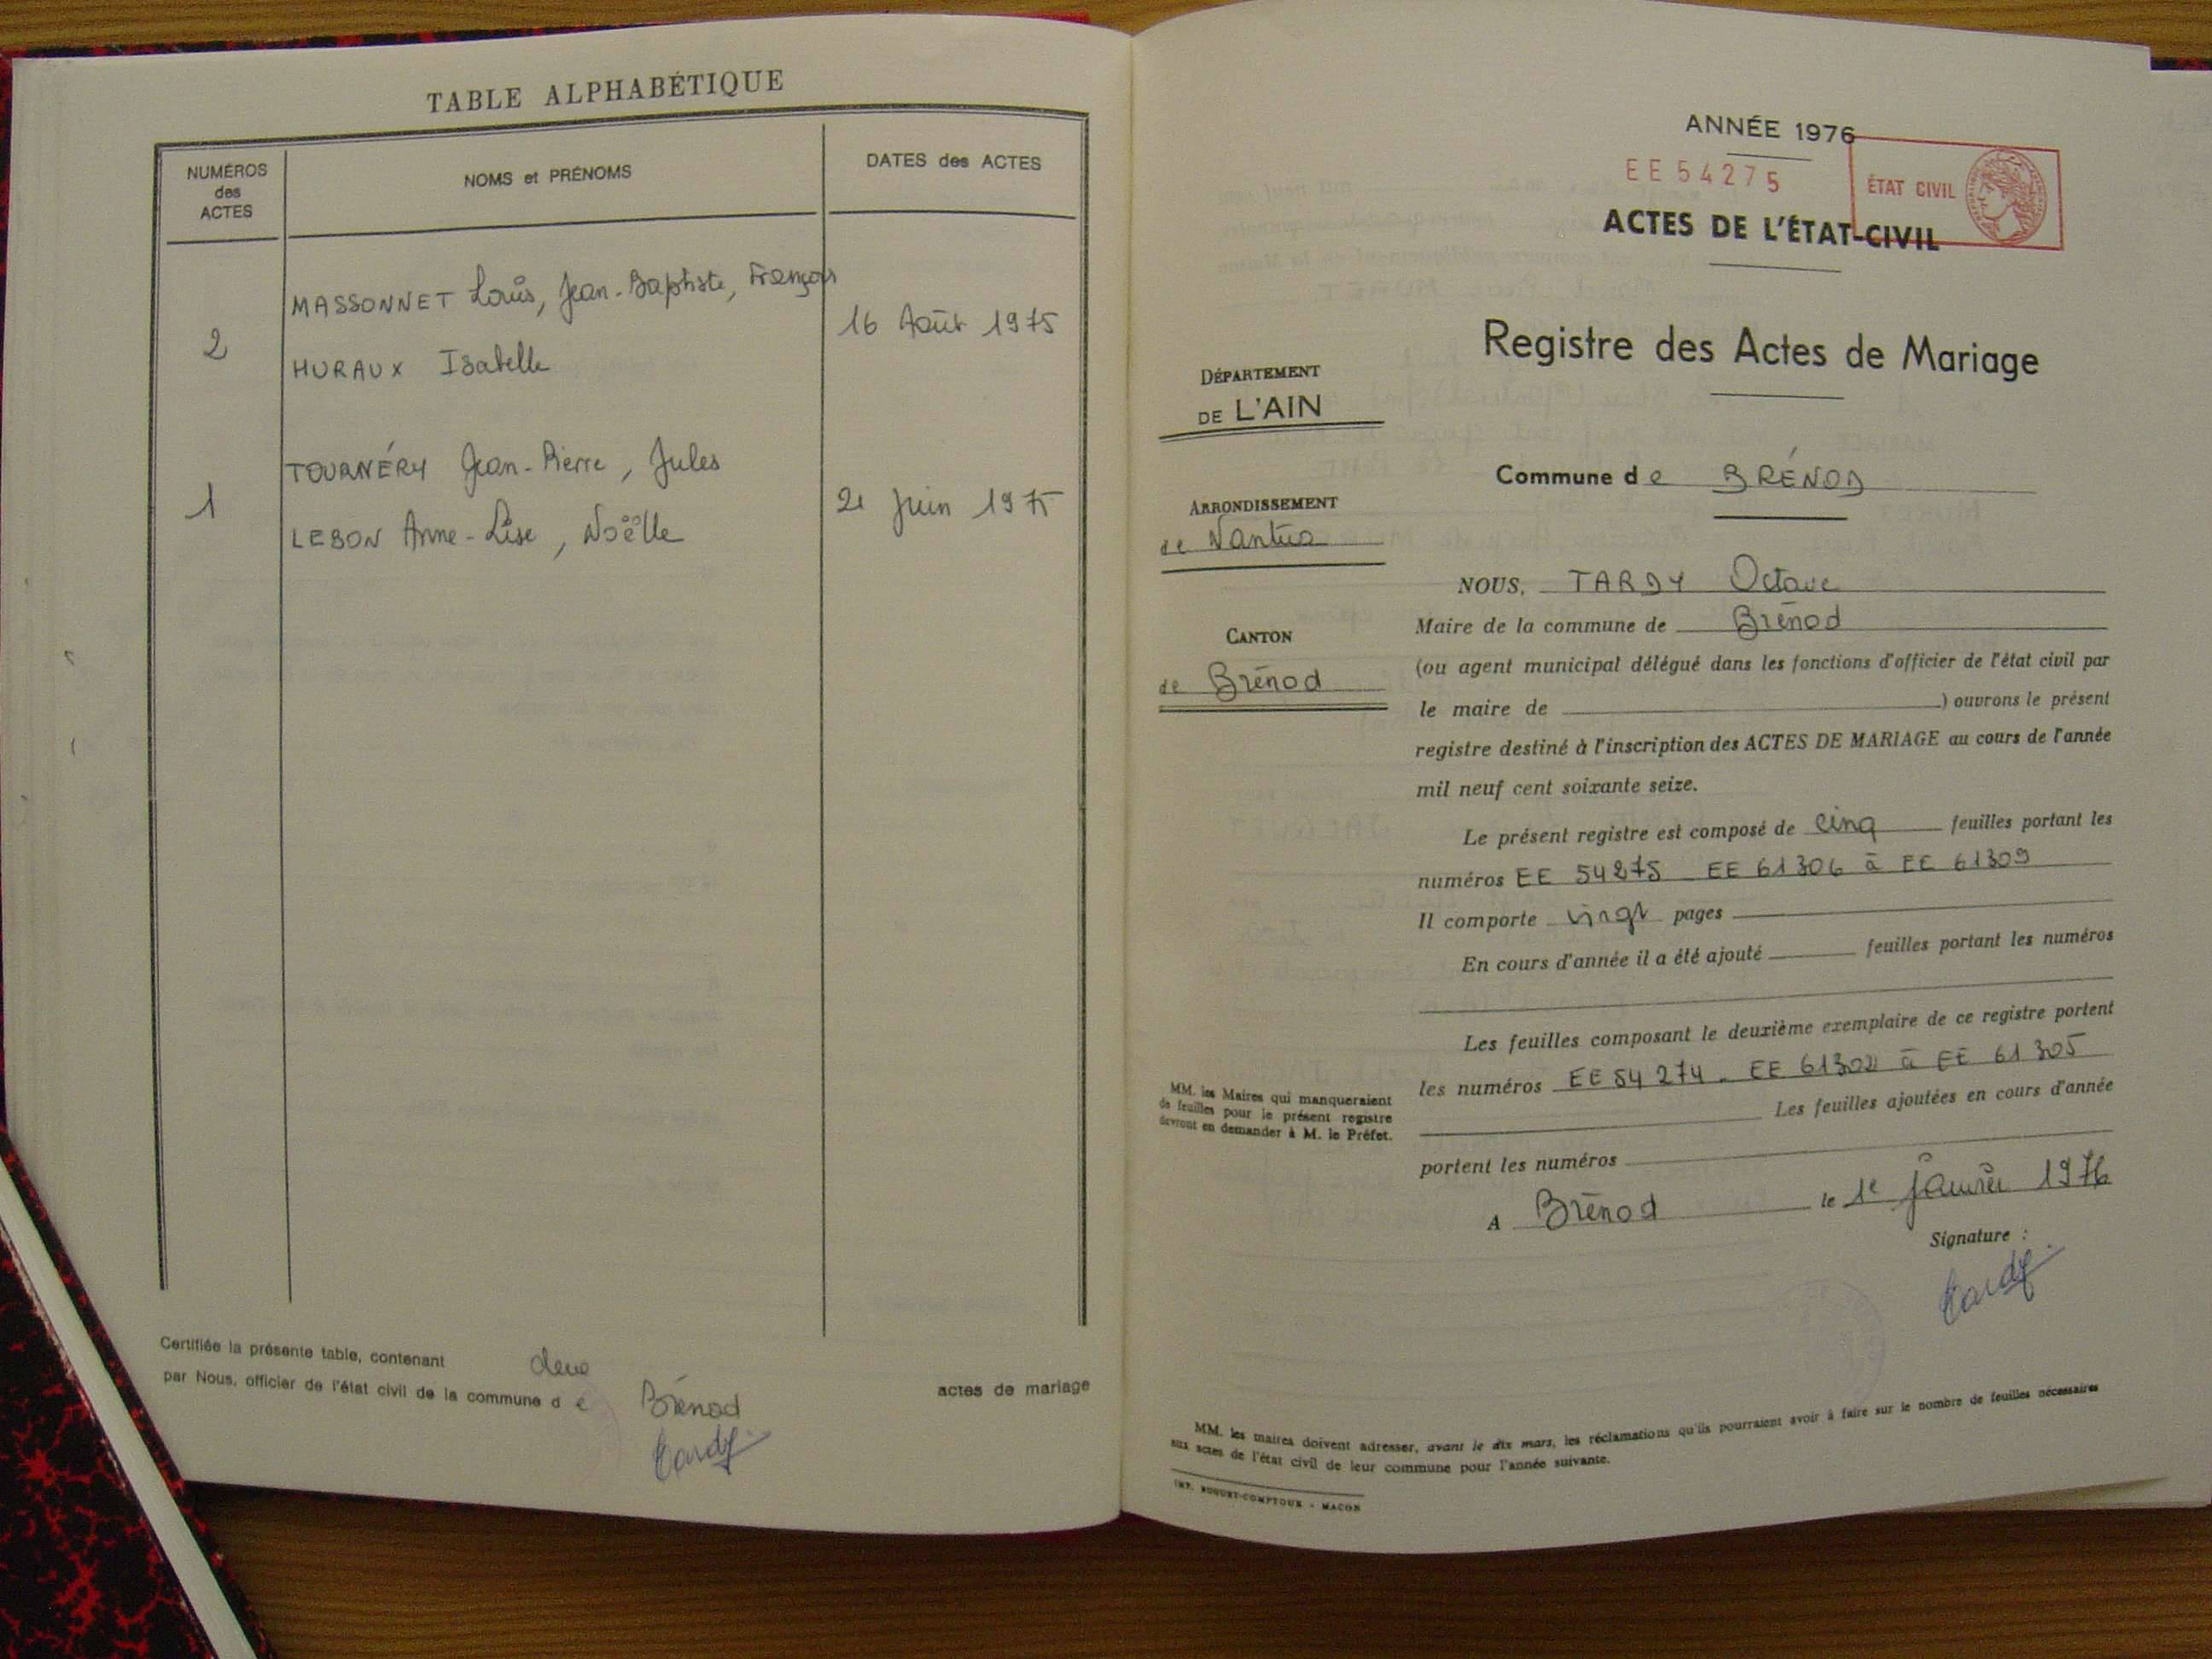 TABLE ALPHABÉTIQUE
NUMÉROS
des
ACTES
NOMS et PRÉNOMS
DATES des ACTES
2
MASSONNET Louis, Jean-Baptiste, François
HURAUX Isabelle
16 Août 1975
1
TOURNÉRY Jean-Pierre, Jules
LEBON Anne-Lise, Noëlle
21 Juin 1975
Certifiée la présente table, contenant deux actes de mariage
par Nous, officier de l'état civil de la commune d e Brénod
Tardy
ANNÉE 1976
EE 54275
ÉTAT CIVIL
ACTES DE L'ÉTAT-CIVIL
Registre des Actes de Mariage
DÉPARTEMENT
DE L'AIN
ARRONDISSEMENT
de Nantua
CANTON
de Brénod
Commune d e BRÉNOD
NOUS, TARDY Octave
Maire de la commune de Brénod
(ou agent municipal délégué dans les fonctions d'officier de l'état civil par
le maire de ) ouvrons le présent
registre destiné à l'inscription des ACTES DE MARIAGE au cours de l'année
mil neuf cent soixante seize.
Le présent registre est composé de cinq feuilles portant les
numéros EE 54275 EE 61306 à EE 61309
Il comporte vingt pages
En cours d'année il a été ajouté feuilles portant les numéros
Les feuilles composant le deuxième exemplaire de ce registre portent
les numéros EE 54 274 - EE 61302 à EE 61 305
Les feuilles ajoutées en cours d'année
portent les numéros
A Brénod le 1e janvier 1976
Signature :
Tardy
MM. les Maires qui manqueraient
de feuilles pour le présent registre
devront en demander à M. le Préfet.
MM. les maires doivent adresser, avant le dix mars, les réclamations qu'ils pourraient avoir à faire sur le nombre de feuilles nécessaires
aux actes de l'état civil de leur commune pour l'année suivante.
IMP. BUGUET-COMPTOUR - MACON